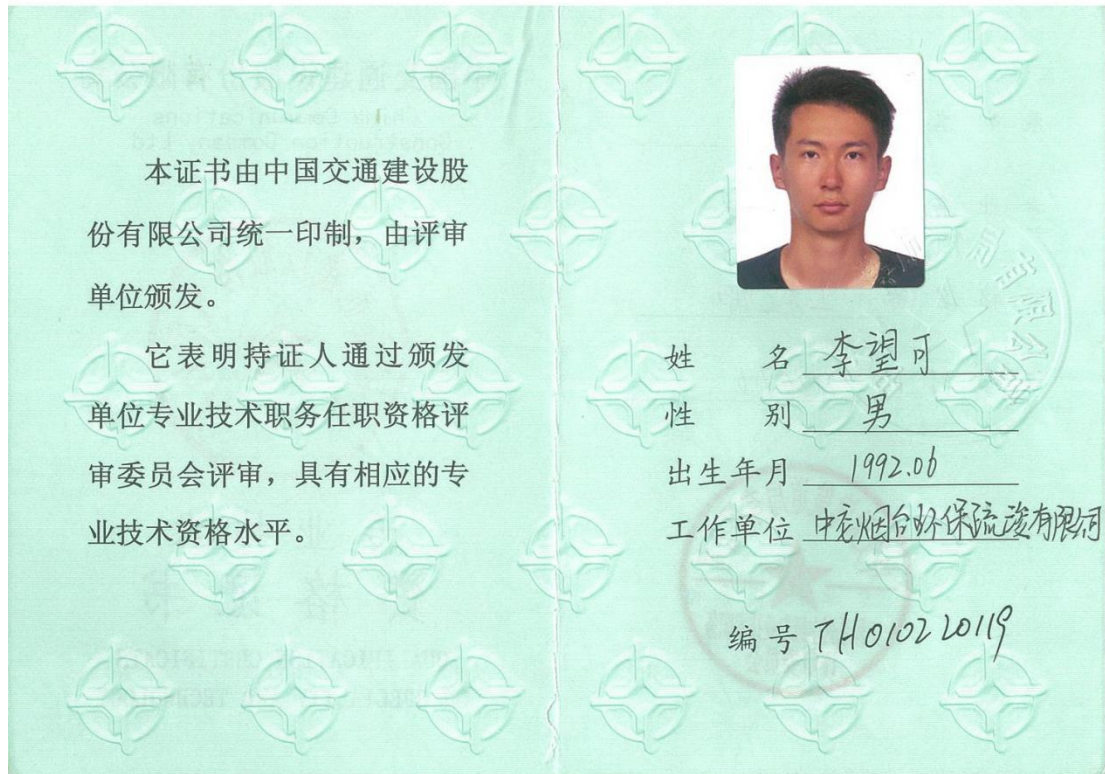 本证书由中国交通建设股
份有限公司统一印制，由评审
单位颁发。
它表明持证人通过颁发
单位专业技术职务任职资格评
审委员会评审，具有相应的专
业技术资格水平。
姓 名 李望可
性 别 男
出生年月 1992.06
工作单位 中交烟台环保疏浚有限公司
编号 TH010220119